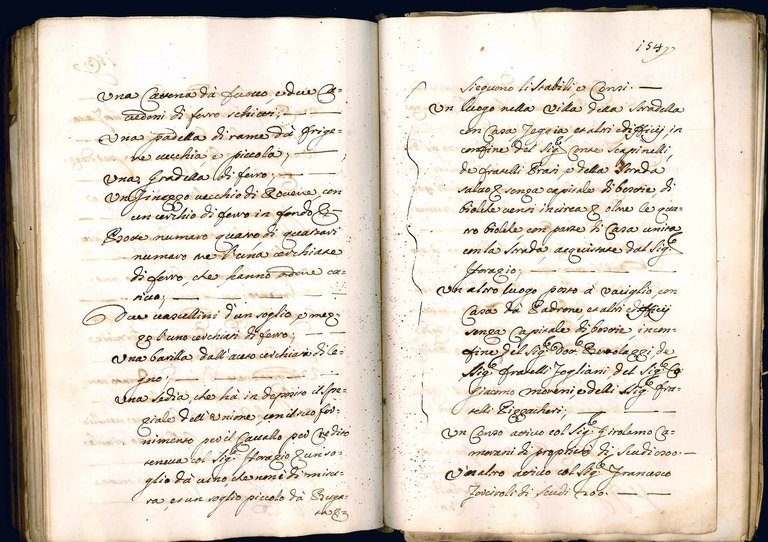 Una Cattena dà fuoco, e due Ca=
vedoni di ferro schietti;
Una padella di rame dà frige=
re vecchia e piccola;
Una Gradella di ferro;
Un Tinazzo vecchio di Rovere con
un cerchio di ferro in fondo &
Botte numaro quatro di quartari
numaro tre l'una cerchiate
di ferro, che hanno odore ca=
tivo;
Due vascellini d'un soglio, e mez=
zo l'uno cerchiati di ferro;
Una barilla dall'aceto cerchiata di le=
gno;
Una sedia, che hà in deposito il spe=
ziale dell'Unione, con il suo for=
nimento per il Cavallo per
teneva col Sig.r Horazio & un so=
glio dà vino che non è di misu=
ra, et un soglio piccolo dà
154
Sieguono li stabili e Censi
Un luogo nella Villa della Stradella
con Casa Teggia et altri edifficij in
confine del Sig.r Conte Scapinelli,
de fratelli Frasi e della Strada
salvo & senza capitale di bestie di
biolche venti incirca & oltre le qua=
tro biolche con parte di Casa unita
con la strada acquistate dal Sig.r
Horazio;
Un altro luogo posto à Vaciglio con
Casa dà Padrone et altri edifficij
senza Capitale di bestie, in con=
fine del Sig.r Dot.r Bertolazzi, de
Sig.ri fratelli Fogliani del Sig.r Co:
Giacomo moreni e delli Sig.ri fra=
telli
Un Censo attivo col Sig.r Girolamo Ca=
morani di proprietà di Scudi
Un altro attivo col Sig.r Francesco
di Scudi 200.